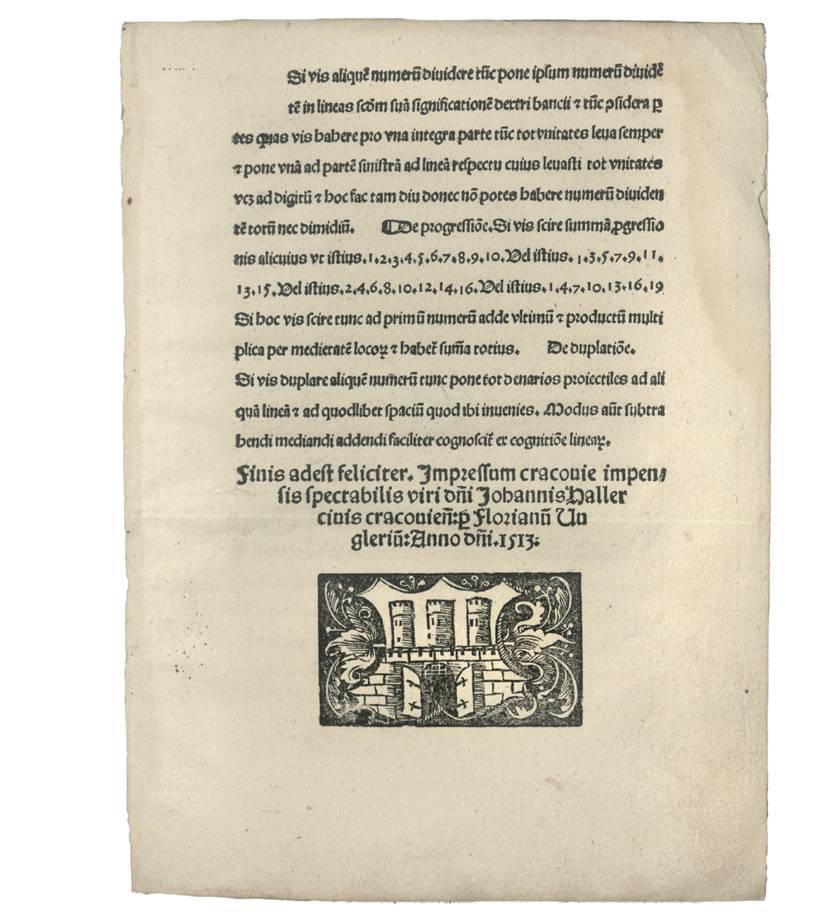 Si vis aliquē numerū diuidere tūc pone ipsum numerū diuidē
tē in lineas scōm suā significationē dextri bancii ⁊ tūc ꝯsidera ꝑ
tes quas vis habere pro vna integra parte tūc tot vnitates leua semper
⁊ pone vnā ad partē sinistrā ad lineā respectu cuius leuasti tot vnitates
vcꝫ ad digitū ⁊ hoc fac tam diu donec nō potes habere numerū diuiden
tē totū nec dimidiū. ⸿De progressiōe. Si vis scire summā ꝓgressio
nis alicuius vt istius.1.2.3.4.5.6.7.8.9.10. Vel istius.1.3.5.7.9.11.
13.15. Vel istius.2.4.6.8.10.12.14.16. Vel istius.1.4.7.10.13.16.19
Si hoc vis scire tunc ad primū numerū adde vltimū ⁊ productū multi
plica per medietatē locoꝝ ⁊ habeƀ sum̄a totius. De duplatiōe.
Si vis duplare aliquē numerū tunc pone tot denarios proiectiles ad ali
quā lineā ⁊ ad quodlibet spaciū quod ibi inuenies. Modus aūt subtra
hendi mediandi addendi faciliter cognoscit̄ ex cognitiōe lineaꝝ.
Finis adest feliciter. Impressum cracouie impen⸗
sis spectabilis viri dn̄i Johannis Haller
ciuis cracouien̄:ꝑ Florianū Un
gleriū: Anno dn̄i.1513.